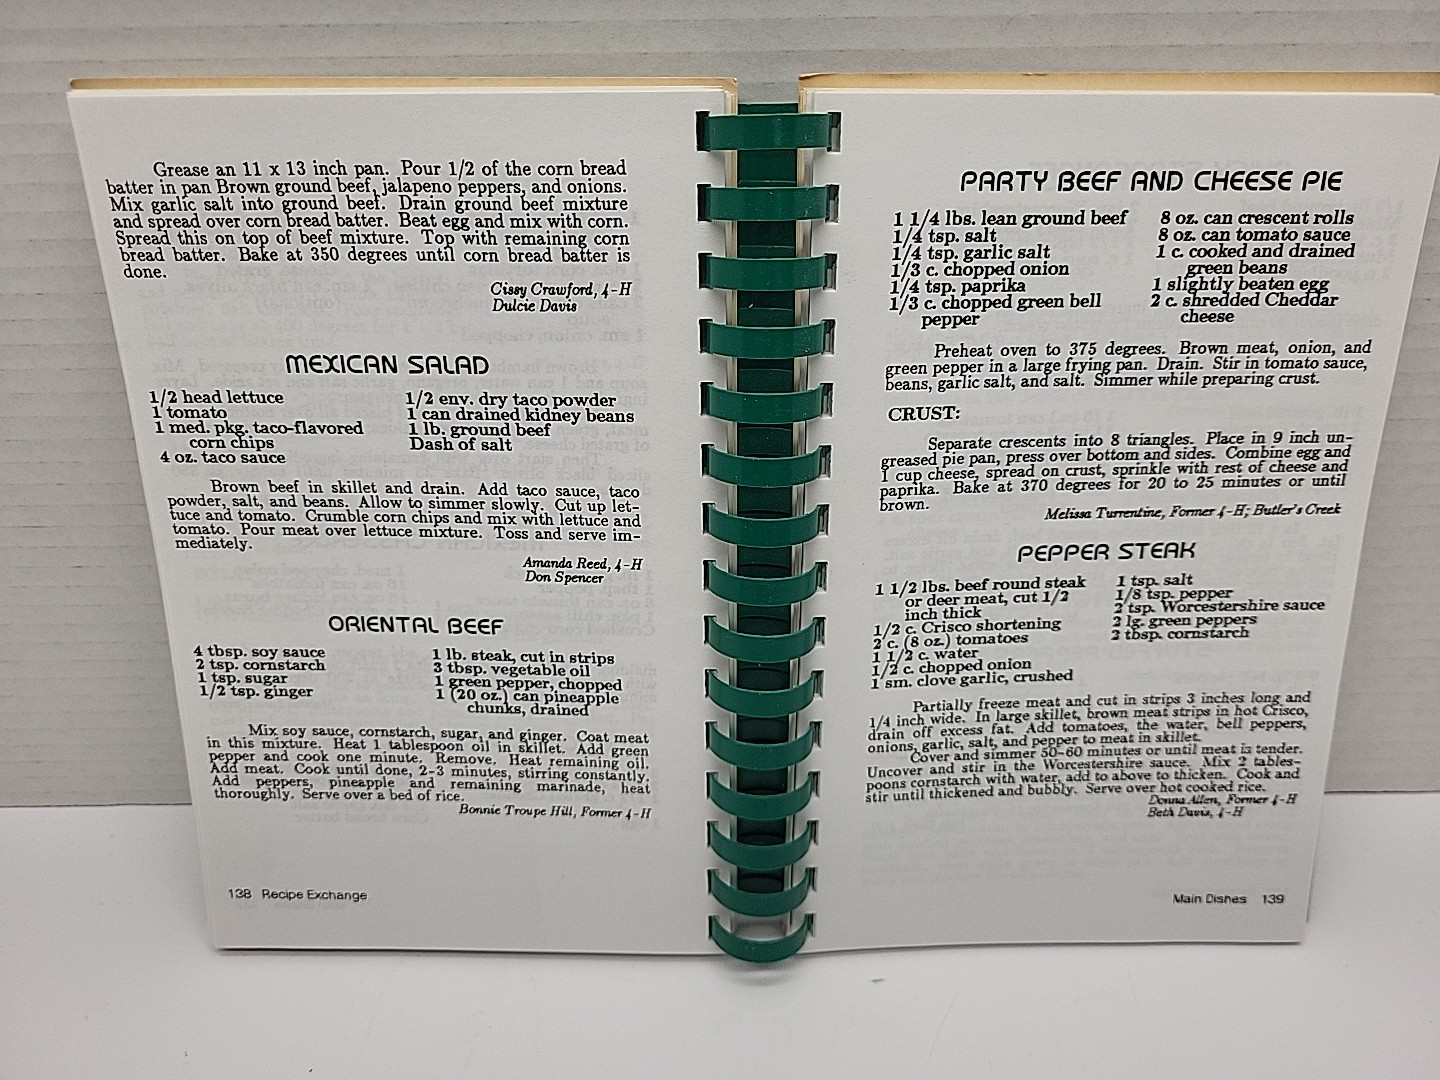 Grease an 11 x 13 inch pan. Pour 1/2 of the corn bread
batter in pan Brown ground beef, jalapeno peppers, and onions.
Mix garlic salt into ground beef. Drain ground beef mixture
and spread over corn bread batter. Beat egg and mix with corn.
Spread this on top of beef mixture. Top with remaining corn
bread batter. Bake at 350 degrees until corn bread batter is
done.
Cissy Crawford, 4-H
Dulcie Davis
MEXICAN SALAD
1/2 head lettuce
1 tomato
1 med. pkg. taco-flavored
corn chips
4 oz. taco sauce
1/2 env. dry taco powder
1 can drained kidney beans
1 lb. ground beef
Dash of salt
Brown beef in skillet and drain. Add taco sauce, taco
powder, salt, and beans. Allow to simmer slowly. Cut up let-
tuce and tomato. Crumble corn chips and mix with lettuce and
tomato. Pour meat over lettuce mixture. Toss and serve im-
mediately.
Amanda Reed, 4-H
Don Spencer
ORIENTAL BEEF
4 tbsp. soy sauce
2 tsp. cornstarch
1 tsp. sugar
1/2 tsp. ginger
1 lb. steak, cut in strips
3 tbsp. vegetable oil
1 green pepper, chopped
1 (20 oz.) can pineapple
chunks, drained
Mix soy sauce, cornstarch, sugar, and ginger. Coat meat
in this mixture. Heat 1 tablespoon oil in skillet. Add green
pepper and cook one minute. Remove. Heat remaining oil.
Add meat. Cook until done, 2-3 minutes, stirring constantly.
Add peppers, pineapple and remaining marinade, heat
thoroughly. Serve over a bed of rice.
Bonnie Troupe Hill, Former 4-H
138 Recipe Exchange
PARTY BEEF AND CHEESE PIE
1 1/4 lbs. lean ground beef
1/4 tsp. salt
1/4 tsp. garlic salt
1/3 c. chopped onion
1/4 tsp. paprika
1/3 c. chopped green bell
pepper
8 oz. can crescent rolls
8 oz. can tomato sauce
1 c. cooked and drained
green beans
1 slightly beaten egg
2 c. shredded Cheddar
cheese
Preheat oven to 375 degrees. Brown meat, onion, and
green pepper in a large frying pan. Drain. Stir in tomato sauce,
beans, garlic salt, and salt. Simmer while preparing crust.
CRUST:
Separate crescents into 8 triangles. Place in 9 inch un-
greased pie pan, press over bottom and sides. Combine egg and
1 cup cheese, spread on crust, sprinkle with rest of cheese and
paprika. Bake at 370 degrees for 20 to 25 minutes or until
brown.
Melissa Turrentine, Former 4-H; Butler's Creek
PEPPER STEAK
1 1/2 lbs. beef round steak
or deer meat, cut 1/2
inch thick
1/2 c. Crisco shortening
2 c. (8 oz.) tomatoes
1 1/2 c. water
1/2 c. chopped onion
1 sm. clove garlic, crushed
1 tsp. salt
1/8 tsp. pepper
2 tsp. Worcestershire sauce
2 lg. green peppers
2 tbsp. cornstarch
Partially freeze meat and cut in strips 3 inches long and
1/4 inch wide. In large skillet, brown meat strips in hot Crisco,
drain off excess fat. Add tomatoes, the water, bell peppers,
onions, garlic, salt, and pepper to meat in skillet.
Cover and simmer 50-60 minutes or until meat is tender.
Uncover and stir in the Worcestershire sauce. Mix 2 tables-
poons cornstarch with water, add to above to thicken. Cook and
stir until thickened and bubbly. Serve over hot cooked rice.
Donna Allen, Former 4-H
Beth Davis, 4-H
Main Dishes 139